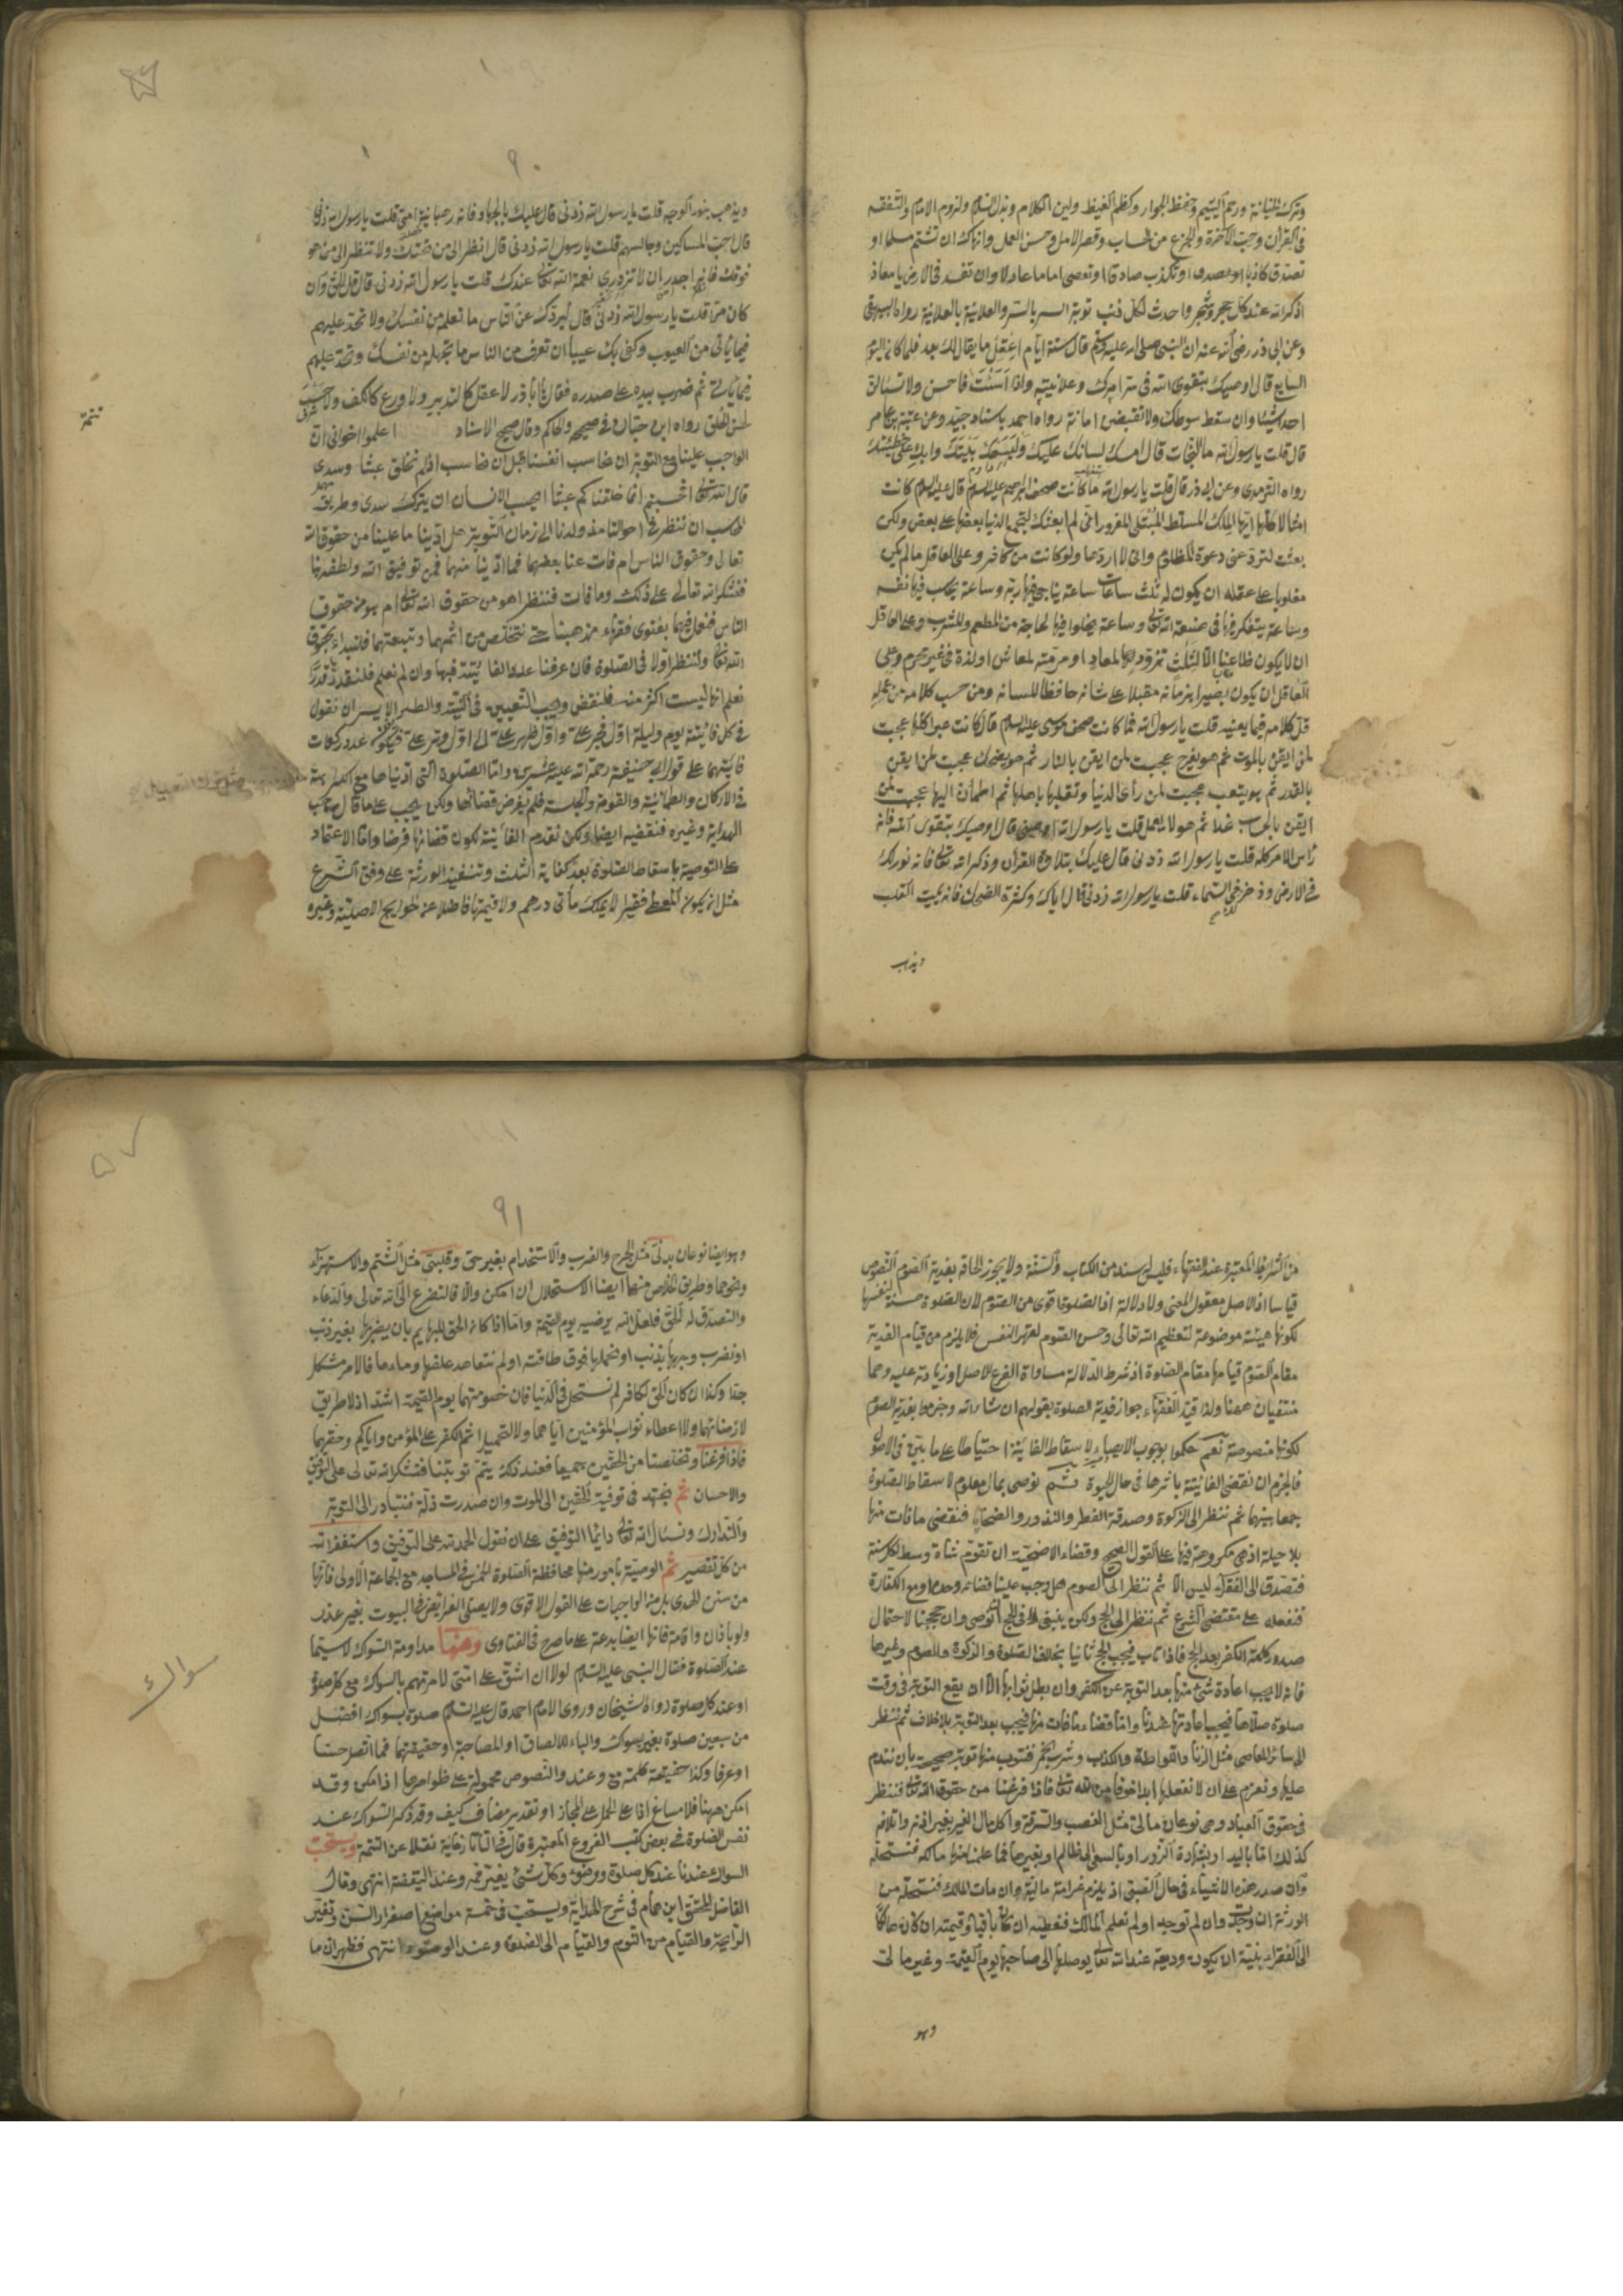 وترك الخيانة ورحم اليتيم وحفظ الجوار وكظم الغيظ ولين الكلام وبذل السلام ولزوم الامام والتفقه
فى القرآن وحب الآخرة والجزع من الحساب وقصر الامل وحسن العمل وانهاك ان تشتم مسلما او
تصدق كاذبا او تكذب صادقا او تعصى اماما عادلا وان تفسد فى الارض يا معاذ
اذكر الله عند كل حجر وشجر واحدث لكل ذنب توبة السر بالسر والعلانية بالعلانية رواه البيهقى
وعن ابى ذر رضى الله عنه ان النبى صلى الله عليه وسلم قال ستة ايام اعقل ما يقال لك بعد فلما كان اليوم
السابع قال اوصيك بتقوى الله فى سر امرك وعلانيته واذا اسئت فاحسن ولا تسالن
احدا شيئا وان سقط سوطك ولا تقبض امانة رواه احمد باسناد جيد وعن عقبة بن عامر
قال قلت يا رسول الله ما النجات قال امسك لسانك عليك وليسعك بيتك وابك على خطيئتك
رواه الترمذى وعن ابى ذر قال قلت يا رسول الله ما كانت صحف ابراهيم عليه السلام قال عليه السلام كانت
امثالا كلها ايها الملك المسلط المبتلى المغرور انى لم ابعثك لتجمع الدنيا بعضها على بعض ولكن
بعثتك لترد عنى دعوة المظلوم وانى لا اردها ولو كانت من كافر وعلى العاقل ما لم يكن
مغلوبا على عقله ان يكون له ثلث ساعات ساعة يناجى فيها ربه وساعة يحاسب فيها نفسه
وساعة يتفكر فيها فى صنعة الله تعالى وساعة يخلوا فيها لحاجته من المطعم والمشرب وعلى العاقل
ان لا يكون ظاعنا الا لثلث تزود لمعاد او مرمة لمعاش او لذة فى غير محرم وعلى
العاقل ان يكون بصيرا بزمانه مقبلا على شانه حافظا للسانه ومن حسب كلامه من عمله
قل كلامه فيما يعنيه قلت يا رسول الله فما كانت صحف موسى عليه السلام قال كانت عبرا كلها عجبت
لمن ايقن بالموت ثم هو يفرح عجبت لمن ايقن بالنار ثم هو يضحك عجبت لمن ايقن
بالقدر ثم هو يتعب عجبت لمن راى الدنيا وتقلبها باهلها ثم اطمأن اليها عجبت لمن
ايقن بالحساب غدا ثم هو لا يعمل قلت يا رسول الله اوصنى قال اوصيك بتقوى الله فانه
رأس الامر كله قلت يا رسول الله زدنى قال عليك بتلاوة القرآن وذكر الله تعالى فانه نور لك
فى الارض وذخر فى السماء قلت يا رسول الله زدنى قال اياك وكثرة الضحك فانه يميت القلب
ويذهب
٩٠
ويذهب بنور الوجه قلت يا رسول الله زدنى قال عليك بالجهاد فانه رهبانية امتى قلت يا رسول الله زدنى
قال احب المساكين وجالسهم قلت يا رسول الله زدنى قال انظر الى من تحتك ولا تنظر الى من هو
فوقك فانه اجدر ان لا تزدرى نعمة الله تعالى عندك قلت يا رسول الله زدنى قال قل الحق وان
كان مرا قلت يا رسول الله زدنى قال ليردك عن الناس ما تعلمه من نفسك ولا تجد عليهم
فيما يأتى من العيوب وكفى بك عيبا ان تعرف من الناس ما تجهله من نفسك وتجد عليهم
فيما يأتى ثم ضرب بيده على صدره فقال يا ابا ذر لا عقل كالتدبير ولا ورع كالكف ولا حسب
كحسن الخلق رواه ابن حبان فى صحيحه والحاكم وقال صحيح الاسناد اعلموا اخوانى ان
تتمة
الواجب علينا مع التوبة ان نحاسب انفسنا قبل ان نحاسب اذ لم نخلق عبثا وسدى
قال الله تعالى افحسبتم انما خلقناكم عبثا ايحسب الانسان ان يترك سدى وطريق
الحاسب ان ننظر فى احوالنا مذ ولدنا الى زمان التوبة هل ادينا ما علينا من حقوق الله
تعالى وحقوق الناس ام فات عنا بعضها فما ادينا منهما فمن توفيق الله ولطفه بنا
فنشكر الله تعالى على ذلك وما فات فننظر اهو من حقوق الله تعالى ام هو من حقوق
الناس فنعمل فيهما بفتوى فقهاء مذهبنا حتى نتخلص من اثمهما وتبعتهما فلنبداء بحقوق
الله تعالى ولننظر اولا فى الصلوة فان عرفنا عدد الفائتة فبها وان لم نعلم فلنقدر قدرا
نعلم انها ليست اكثر منه فلنقض ويجب التعيين فى النية والطريق الايسر ان نقول
فى كل فائتة يوم وليلة اول فجر على واول ظهر على الى اول وتر على فيكون عدد ركعات
فائتهما على قول ابى حنيفة رحمة الله عليه عشرين واما الصلوة التى اديناها مع الكراهة
فى الاركان والطمانينة والقومة والجلسة فلم يفرض قضائها ولكن يجب على ما قال صاحب
الهداية وغيره فنقضيه ايضا ولكن نقدم الفائتة لكون قضائها فرضا واما الاعتماد
على التوصية باسقاط الصلوة بعد كفاية الثلث وتنفيذ الورثة على وفق الشرع
مثل ان يكون المعطى فقيرا لا يملك مأتى درهم ولا قيمتها فاضلا عن الحوايج الاصلية وغيره
من الشرائط المعتبرة عند الفقهاء فليس له سند من الكتاب والسنة ولا يجوز الحاقه بفدية الصوم النصوص
قياسا اذ الاصل معقول المعنى ولا دلالة اذ الصلوة اقوى من الصوم لان الصلوة حسنة لنفسها
لكونها هيئة موضوعة لتعظيم الله تعالى وحسن الصوم لقهر النفس فلا يلزم من قيام الفدية
مقام الصوم قيامها مقام الصلوة اذ شرط الدلالة مساواة الفرع للاصل او زيادته عليه وهما
منتفيان ههنا ولذا قيد الفقهاء جواز فدية الصلوة بقولهم ان شاء الله وجزموا بفدية الصوم
لكونها منصوصة نعم حكموا بوجوب الايصاء لاسقاط الفائتة احتياطا على ما بين فى الاصول
فالجزم ان نقضى الفائتة باسرها فى حال الحيوة ثم نوصى بمال معلوم لاسقاط الصلوة
جمعا بينهما ثم ننظر الى الزكوة وصدقة الفطر والنذور والضحايا فنقضى ما فات منها
بلا حيلة اذ هى مكروهة فيها على القول الصحيح وقضاء الاضحية ان تقوم شاة وسط لكل سنة
فنتصدق الى الفقراء ليس الا ثم ننظر الى الصوم هل وجب علينا قضائه وحدها ومع الكفارة
فنفعله على مقتضى الشرع ثم ننظر الى الحج ولكن ينبغى لنا فى الحج ان نوصى وان حججنا لاحتمال
صدور كلمة الكفر بعد الحج فاذا تاب فيجب الحج ثانيا بخلاف الصلوة والزكوة والصوم وغيرها
فانه لا يجب اعادة شئ منها بعد التوبة عن الكفر وان بطل ثوابها الا ان يقع التوبة فى وقت
صلوة صلاها فيجب اعادتها عندنا واما قضاء ما فات منها فيجب بعد التوبة بلا خلاف ثم ننظر
الى سائر المعاصى مثل الزنا واللواطة والكذب وشرب الخمر فنتوب منها توبة صحيحة بان نندم
عليها ونعزم على ان لا نفعلها ابدا خوفا من الله تعالى فاذا فرغنا من حقوق الله تعالى فننظر
فى حقوق العباد وهى نوعان مالى مثل الغصب والسرقة واكل مال الغير بغير اذنه واتلافه
كذلك اما باليد او بشهادة الزور او بالسعى الى ظالم او بغيرها فما علمنا منها مالكه فنستحله
وان صدر هذه الاشياء فى حال الصبى اذ يلزم غرامة مالية وان مات المالك فنستحله من
الورثة ان وجدت وان لم توجد او لم نعلم المالك فنعطيه ان كان باقيا او قيمته ان كان هالكا
الى الفقراء بنية ان يكون وديعة عند الله تعالى يوصلها الى صاحبها يوم القيمة وغير مالى
وهو
٩١
وهو ايضا نوعان بدنى مثل الجرح والضرب والاستخدام بغير حق وقلبى مثل الشتم والاستهزاء
ونحوهما وطريق الخلاص منهما ايضا الاستحلال ان امكن والا فالتضرع الى الله تعالى والدعاء
والتصدق له الحق فلعل الله يرضيه يوم القيمة واما اذا كان الحق للبهايم بان يضربها بغير ذنب
او نضرب وجهها بذنب او نحملها فوق طاقته او لم نتعاهد علفها وماءها فالامر مشكل
جدا وكذا ان كان الحق لكافر لم نستحل فى الدنيا فان خصومتهما يوم القيمة اشد اذ لا طريق
لارضائهما ولا اعطاء ثواب المؤمنين اياهما ولا لتحميل اثم الكفر على المؤمن واياكم وحقهما
فاذا فرغنا وتخلصنا من الحقين جميعا فعند ذلك يتم توبتنا فنشكر الله تعالى على التوفيق
والاحسان ثم نجتهد فى توفية الحقين الى الموت وان صدرت ذلة فنتبادر الى التوبة
والتدارك ونسئال الله تعالى دائما التوفيق على ان نقول الحمد لله على التوفيق واستغفر الله
من كل تقصير ثم الوصية بامور منها محافظة الصلوة الخمس فى المساجد مع الجماعة الاولى فانها
من سنن الهدى بل من الواجبات على القول الاقوى ولا يصلى الفرايض فى البيوت بغير عذر
ولو باذان واقامة فانها ايضا بدعة على ما صرح فى الفتاوى ومنها مداومة السواك لا سيما
سواك
عند الصلوة فقال النبى عليه السلام لولا ان اشق على امتى لامرتهم بالسواك مع كل صلوة
او عند كل صلوة رواه الشيخان وروى الامام احمد قال عليه السلام صلوة بسواك افضل
من سبعين صلوة بغير سواك والباء للالصاق او المصاحبة او حقيقتهما فما اتصل حسا
او عرفا وكذا حقيقة كلمة مع وعند والنصوص محمولة على ظواهرها اذا امكن وقد
امكن ههنا فلا مساغ اذا على الحمل على المجاز او تقدير مضاف كيف وقد ذكر السواك عند
نفس الصلوة فى بعض كتب الفروع المعتبرة قال فى التاتارخانية نقلا عن التتمة ويستحب
السواك عندنا عند كل صلوة ووضوء وكل شئ يغير فمه وعند اليقظة انتهى وقال
الفاضل المحقق ابن همام فى شرح الهداية ويستحب فى خمسة مواضع اصفرار السن وتغير
الرايحة والقيام من النوم والقيام الى الصلوة وعند الوضوء انتهى فظهر ان ما